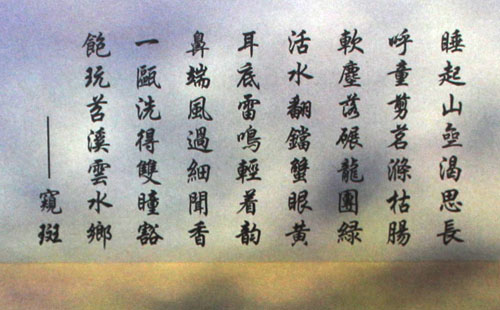 睡起山壺渴思長
呼童剪茗滌枯腸
軟塵落碾龍團綠
活水翻鐺蟹眼黃
耳底雷鳴輕着韵
鼻端風過細聞香
一甌洗得雙瞳豁
飽玩苕溪雲水鄉
——窺斑